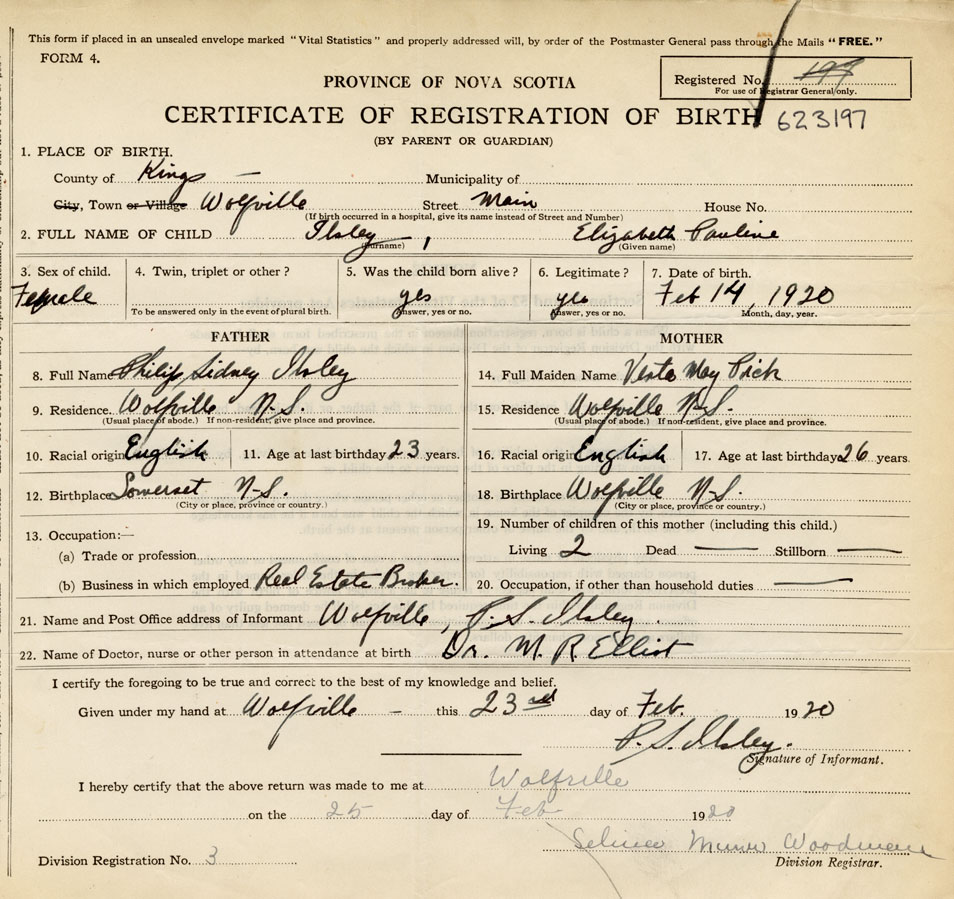 This form if placed in an unsealed envelope marked "Vital Statistics" and properly addressed will, by order of the Postmaster General pass through the Mails "FREE."
FORM 4.
Registered No. 197
For use of Registrar General only.
PROVINCE OF NOVA SCOTIA
CERTIFICATE OF REGISTRATION OF BIRTH 623197
(BY PARENT OR GUARDIAN)
1. PLACE OF BIRTH.
County of Kings — Municipality of
City, Town or Village Wolfville Street Main House No.
(If birth occurred in a hospital, give its name instead of Street and Number)
2. FULL NAME OF CHILD Ilsley, Elizabeth Pauline
(Surname) (Given name)
3. Sex of child. 4. Twin, triplet or other? 5. Was the child born alive? 6. Legitimate? 7. Date of birth.
Female yes yes Feb 14, 1920
To be answered only in the event of plural birth. Answer, yes or no. Answer, yes or no. Month, day, year.
FATHER MOTHER
8. Full Name Philip Sidney Ilsley 14. Full Maiden Name May
9. Residence. Wolfville N.S. 15. Residence Wolfville N.S.
(Usual place of abode.) If non-resident, give place and province. (Usual place of abode.) If non-resident, give place and province.
10. Racial origin English 11. Age at last birthday 23 years. 16. Racial origin English 17. Age at last birthday 26 years.
12. Birthplace Somerset N.S. 18. Birthplace Wolfville N.S.
(City or place, province or country.) (City or place, province or country.)
13. Occupation:— 19. Number of children of this mother (including this child.)
(a) Trade or profession Living 2 Dead — Stillborn —
(b) Business in which employed Real Estate Broker. 20. Occupation, if other than household duties —
21. Name and Post Office address of Informant Wolfville, P. S. Ilsley.
22. Name of Doctor, nurse or other person in attendance at birth Dr. M. R. Elliot
I certify the foregoing to be true and correct to the best of my knowledge and belief.
Given under my hand at Wolfville — this 23rd day of Feb. 1920
P. S. Ilsley.
Signature of Informant.
I hereby certify that the above return was made to me at Wolfville
on the 25 day of Feb 1920
Munro Woodman
Division Registration No. 3 Division Registrar.